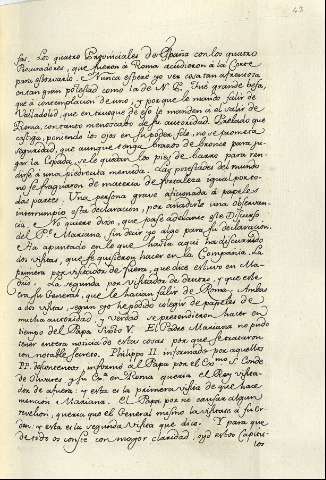 43
fas. Los quatro Provinciales de España con los quatro
Procuradores, que fueron à Roma acudieron à la Corte
para estorvarlo. Nunca esperè yo ver cosa tan afrentosa
en tan gran potestad como la de N. P. Fuè grande befa,
que à contemplacion de uno, y porque le mandò salir de
Valladolid, que en trueque de ello le manden à el salir de
Roma, con tanto menoscabo de su autoridad. Pretendo que
estiga, poniendo los ojos en su poder, no se prometa
seguridad, que aunque tenga brazos de bronce para ju-
gar la Espada, se le quedan los pies de barro para ren-
dirse à una piedrecita menuda. Las potestades del mundo
no se fraguaron de materia de fortaleza igual por to-
das partes. Una persona grave aficionada à papeles
interrumpiò esta declaracion, por añadirle una observan-
cia. No quiero dixo, que pase adelante este Discurso
del Pe. Mariana, sin decir yo algo para su declaracion.
Ha apuntado en lo que hasta aqui ha discurrido
dos visitas, que se quisieron hacer en la Compañia. La
primera por visitador de fuera, que dice estuvo en Ma-
drid. La segunda por visitador de dentro, y que este
era su General, que le hacian salir de Roma. Ambas
a dos visitas, segun yo he podido colegir de papeles de
mucha autoridad, y verdad se pretendieron hacer en
tiempo del Papa Sixto V. El Padre Mariana no pudo
tener entera noticia de estas cosas por que se trataron
con notable secreto. Philippo II informado por aquellos
PP. descontentos, informò al Papa por el Exmo. Sr. Conde
de Olivares y su Emr. en Roma queria el Rey visita-
dor de afuera, y esta es la primera visita de que hace
mencion Mariana. El Papa por no causar algun
revelion, queria que el General mismo la visitase à su Or-
den, y esta es la segunda visita que dice. Y para que
de todo os conste con mayor claridad, oyd estos Capitu-
los